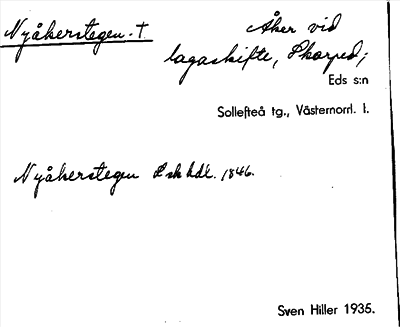 Nyåkerstegen. †.
Åker vid
lagaskifte, Skorped;
Eds s:n
Sollefteå tg., Västernorrl. l.
Nyåkerstegen Lsk hdl. 1846.
Sven Hiller 1935.